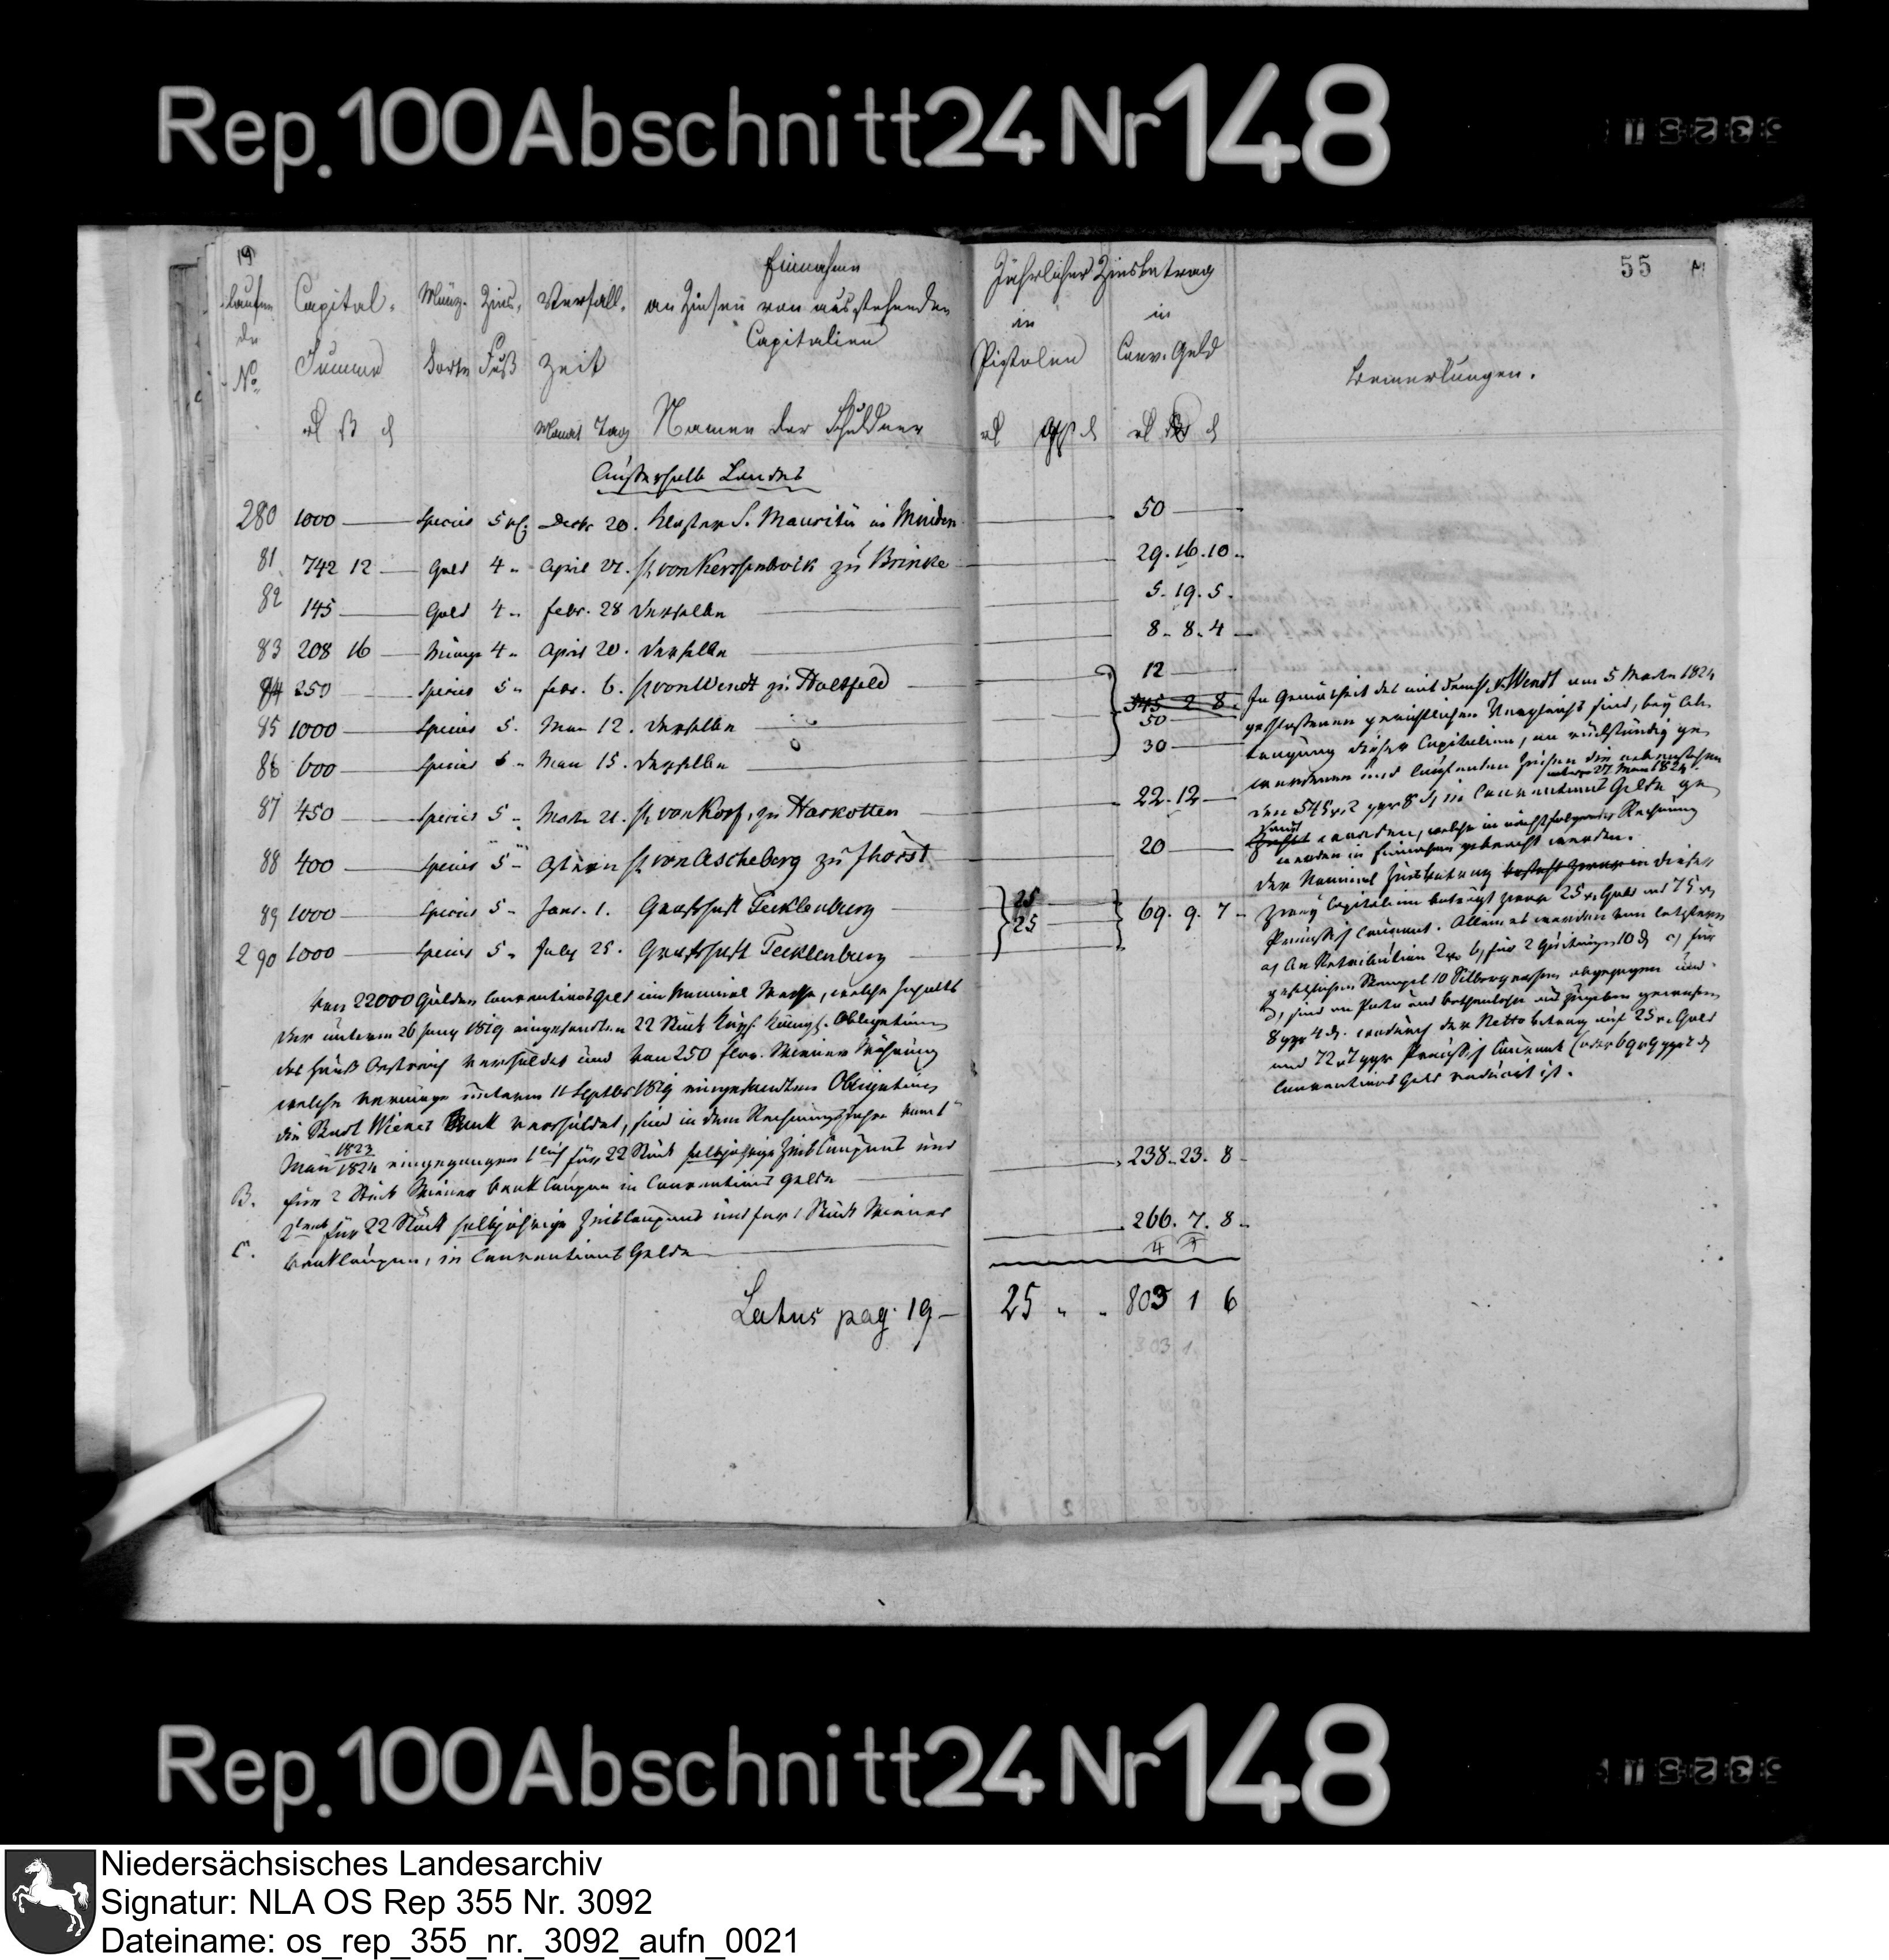 Rep. 100 Abschnitt 24 Nr 148
19
55
Einnahme
an Zinsen von ausstehenden
Capitalien
Jährlicher Zinsbetrag
in Pistolen
in Conv. Geld
Laufende No
Capital-Summe
Münz-Sorte
Zins-Fuß
Verfall-Zeit
Monat Tag
Namen der Schuldner
Bemerkungen.
Außerhalb Landes
280 1000 Species 5 Decbr 20. Kloster S. Mauritii in Minden 50
81 742 12 Gold 4 April 21. H. von Kerssenbrock zu Brinke 29. 16. 10
82 145 Gold 4 Febr. 28 derselbe 5. 19. 5.
83 208 16 Münze 4 April 20. derselbe 8. 8. 4
84 250 Species 5 Febr. 6. H. von Wendt zu Holtfeld 12
545 2 8
85 1000 Species 5. May 12. derselbe 50
86 600 Species 5 May 15. derselbe 30
87 450 Species 5 Martz 21. H. von Korf, zu Harkotten 22. 12
88 400 Species 5 Ostern H. von Ascheberg zu Ihorst 20
89 1000 Species 5 Janr. 1. Grafschaft Tecklenburg 25
290 1000 Species 5. July 25. Grafschaft Tecklenburg 25 69. 9. 7
In Gemäßheit des mit dem H. v. Wendt am 5 Martz 1824
geschlossenen gerichtlichen Vergleichs sind, bey Ab-
tragung dieser Capitalien, an rückständig ge-
wordenen und laufenden Zinsen die nebenstehen-
unterm 27 May 1824
den 545 r 2 ggr 8 d in Conventions Gelde ge-
zahlt worden, welche in nächstfolgender Rechnung
werden in Einnahme gebracht werden.
Der Nominal Zinsbetrag dieser
zwey Capitalien beträgt zwar 25 r. Gold und 75 r
Preussisch Courant. Allein es werden vom letztern
a) An Retribution 2 r b) für 2 Quitungen 10 d c) für
gesetzlichen Stempel 10 Silbergroschen abgezogen und
d) sind an Porto und Bothenlohn auszugeben gewesen
8 ggr 4 d. wodurch der Netto betrag auf 25 r. Gold
und 72 r 7 ggr Preussisch Courant (oder 69 r 9 ggr 7 d
Conventions Geld reducirt ist.
Von 22000 Gulden Conventions Geld im Nominal Werthe, welche Inhalts
der unterm 26 Juny 1819 eingesandten 22 Stück Kays. Königl. Obligationen
das Haus Oestreich verschuldet und von 250 flor. Wiener Währung
welche vermöge unterm 11 Septbr 1819 eingesandten Obligation
die Stadt Wiener Bank verschuldet, sind in dem Rechnungsjahre vom 1
May 1823/1824 eingegangen 1 lich für 22 Stück halbjährige Zins Coupons und
B. für 2 Stück Wiener Bank Coupon in Conventions Gelde 238. 23. 8
2tens für 22 Stück halbjährige Zins Coupons und für 1 Stück Wiener
C. Bank Coupon, in Conventions Gelde 266. 7. 8
4
Latus pag. 19 25 " " 803 1 6
803 1
Rep. 100 Abschnitt 24 Nr 148
Niedersächsisches Landesarchiv
Signatur: NLA OS Rep 355 Nr. 3092
Dateiname: os_rep_355_nr._3092_aufn_0021